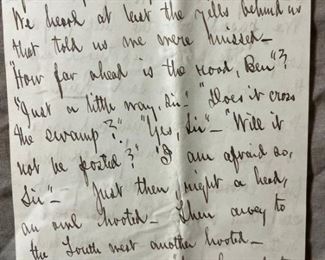 We heard at least the yells behind us
that told us we were missed_
"How far ahead is the road, Ben"?
"Just a little way, Sir_" "Does it cross
the swamp?" "Yes, Sir"_ "Will it
not be posted?" "I am afraid so,
Sir"_ Just then, right a head,
an owl hooted_ Then away to
the South west another hooted_